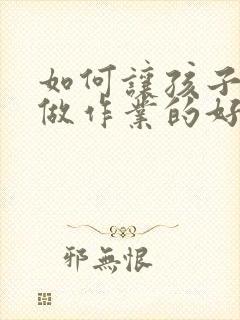 如何讓孩子
做作業的好
邪無恨